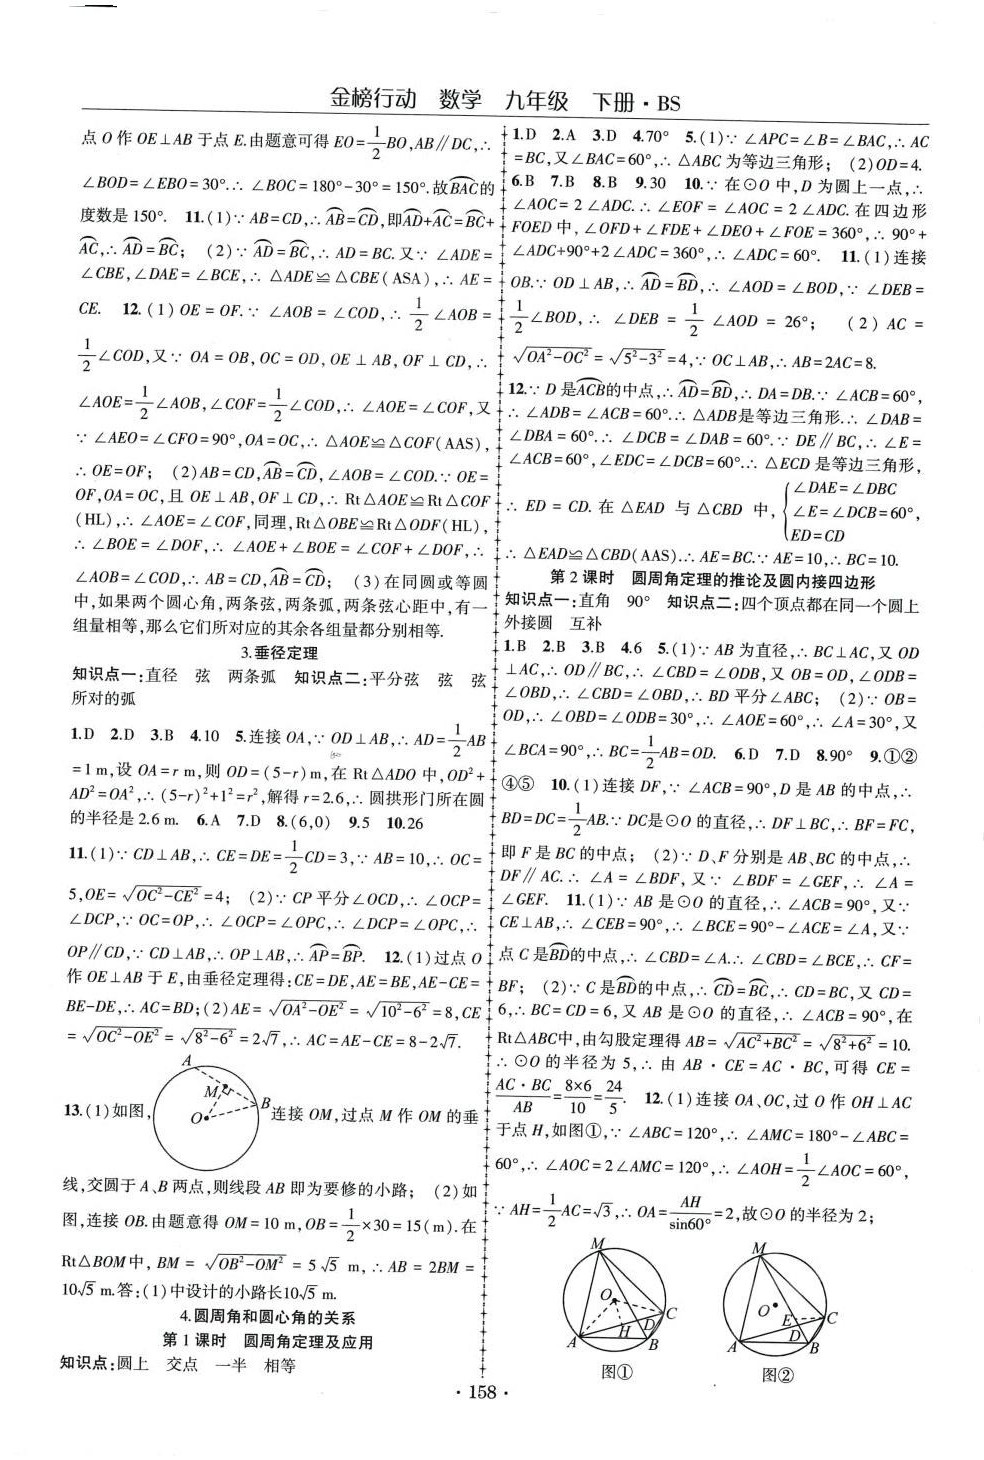 金榜行动 数学 九年级 下册·BS
点 O 作 OE⊥AB 于点 E.由题意可得 EO=1/2BO,AB∥DC,∴
∠BOD=∠EBO=30°.∴ ∠BOC=180°-30°=150°.故BAC⌒的
度数是 150°. 11.(1)∵ AB=CD,∴AB⌒=CD⌒,即AD⌒+AC⌒=BC⌒+
AC⌒,∴AD⌒=BC⌒; (2)∵ AD⌒=BC⌒,∴ AD=BC.又∵ ∠ADE=
∠CBE,∠DAE=∠BCE,∴ △ADE≌△CBE(ASA),∴ AE=
CE. 12.(1)OE=OF.∵ ∠AOB=∠COD,∴ 1/2∠AOB=
1/2∠COD,又∵ OA=OB,OC=OD,OE⊥AB,OF⊥CD,∴
∠AOE=1/2∠AOB,∠COF=1/2∠COD,∴ ∠AOE=∠COF,又
∵ ∠AEO=∠CFO=90°,OA=OC,∴ △AOE≌△COF(AAS),
∴ OE=OF; (2)AB=CD,AB⌒=CD⌒,∠AOB=∠COD.∵ OE=
OF,OA=OC,且 OE⊥AB,OF⊥CD,∴ Rt△AOE≌Rt△COF
(HL),∴ ∠AOE=∠COF,同理,Rt△OBE≌Rt△ODF(HL),
∴ ∠BOE=∠DOF,∴ ∠AOE+∠BOE=∠COF+∠DOF,∴
∠AOB=∠COD,∴ AB=CD,AB⌒=CD⌒; (3)在同圆或等圆
中,如果两个圆心角,两条弦,两条弧,两条弦心距中,有一
组量相等,那么它们所对应的其余各组量都分别相等.
3.垂径定理
知识点一:直径 弦 两条弧 知识点二:平分弦 弦 弦
所对的弧
1.D 2.D 3.B 4.10 5.连接 OA,∵ OD⊥AB,∴ AD=1/2AB
=1 m,设 OA=r m,则 OD=(5-r)m,在 Rt△ADO 中,OD²+
AD²=OA²,∴ (5-r)²+1²=r²,解得 r=2.6,∴ 圆拱形门所在圆
的半径是 2.6 m. 6.A 7.D 8.(6,0) 9.5 10.26
11.(1)∵ CD⊥AB,∴ CE=DE=1/2CD=3,∵ AB=10,∴ OC=
5,OE=√(OC²-CE²)=4; (2)∵ CP 平分∠OCD,∴ ∠OCP=
∠DCP,∵ OC=OP,∴ ∠OCP=∠OPC,∴ ∠DCP=∠OPC,∴
OP∥CD,∵ CD⊥AB,∴ OP⊥AB,∴ AP⌒=BP⌒. 12.(1)过点 O
作 OE⊥AB 于 E,由垂径定理得:CE=DE,AE=BE,AE-CE=
BE-DE,∴ AC=BD;(2)AE=√(OA²-OE²)=√(10²-6²)=8,CE
=√(OC²-OE²)=√(8²-6²)=2√7,∴ AC=AE-CE=8-2√7.
A
M
O
B
13.(1)如图, 连接 OM,过点 M 作 OM 的垂
线,交圆于 A、B 两点,则线段 AB 即为要修的小路; (2)如
图,连接 OB.由题意得 OM=10 m,OB=1/2×30=15(m).在
Rt△BOM中,BM=√(OB²-OM²)=5√5 m,∴ AB=2BM=
10√5 m.答:(1)中设计的小路长10√5 m.
4.圆周角和圆心角的关系
第 1 课时 圆周角定理及应用
知识点:圆上 交点 一半 相等
1.D 2.A 3.D 4.70° 5.(1)∵ ∠APC=∠B=∠BAC,∴ AC
=BC,又∠BAC=60°,∴ △ABC 为等边三角形; (2)OD=4.
6.B 7.B 8.B 9.30 10.∵ 在⊙O 中,D 为圆上一点,∴
∠AOC=2∠ADC.∴ ∠EOF=∠AOC=2∠ADC.在四边形
FOED中,∠OFD+∠FDE+∠DEO+∠FOE=360°,∴ 90°+
∠ADC+90°+2∠ADC=360°,∴ ∠ADC=60°. 11.(1)连接
OB.∵ OD⊥AB,∴ AD⌒=BD⌒,∴ ∠AOD=∠BOD,∵ ∠DEB=
1/2∠BOD,∴ ∠DEB=1/2∠AOD=26°; (2)AC=
√(OA²-OC²)=√(5²-3²)=4,∵ OC⊥AB,∴ AB=2AC=8.
12.∵ D 是ACB⌒的中点,∴AD⌒=BD⌒,∴ DA=DB.∵ ∠ACB=60°,
∴ ∠ADB=∠ACB=60°.∴ △ADB是等边三角形.∴ ∠DAB=
∠DBA=60°.∴ ∠DCB=∠DAB=60°.∵ DE∥BC,∴ ∠E=
∠ACB=60°,∠EDC=∠DCB=60°.∴ △ECD 是等边三角形,
∴ ED=CD.在△EAD 与△CBD 中,{∠DAE=∠DBC
∠E=∠DCB=60°,
ED=CD
∴ △EAD≌△CBD(AAS).∴ AE=BC.∵ AE=10,∴ BC=10.
第 2 课时 圆周角定理的推论及圆内接四边形
知识点一:直角 90° 知识点二:四个顶点都在同一个圆上
外接圆 互补
1.B 2.B 3.B 4.6 5.(1)∵ AB 为直径,∴ BC⊥AC,又 OD
⊥AC,∴ OD∥BC,∴ ∠CBD=∠ODB,又 OB=OD,∠ODB=
∠OBD,∴ ∠CBD=∠OBD,∴ BD 平分∠ABC; (2)∵ OB=
OD,∴ ∠OBD=∠ODB=30°,∴ ∠AOE=60°,∴ ∠A=30°,又
∠BCA=90°,∴ BC=1/2AB=OD. 6.D 7.D 8.90° 9.①②
④⑤ 10.(1)连接 DF,∵ ∠ACB=90°,D 是 AB 的中点,∴
BD=DC=1/2AB.∵ DC是⊙O 的直径,∴ DF⊥BC,∴ BF=FC,
即 F 是 BC 的中点; (2)∵ D、F 分别是 AB、BC 的中点,∴
DF∥AC.∴ ∠A=∠BDF,又∵ ∠BDF=∠GEF,∴ ∠A=
∠GEF. 11.(1)∵ AB 是⊙O 的直径,∴ ∠ACB=90°,又∵
CE⊥AB,∴ ∠CEB=90°,∴ ∠BCE=90°-∠ACE=∠A,又∵
点 C 是BD⌒的中点,∴ ∠CBD=∠A.∴ ∠CBD=∠BCE,∴ CF=
BF; (2)∵ C 是BD⌒的中点,∴ CD⌒=BC⌒,∴ CD=BC,又 CD=
6,∴ BC=CD=6,又 AB 是⊙O 的直径,∴ ∠ACB=90°,在
Rt△ABC中,由勾股定理得 AB=√(AC²+BC²)=√(8²+6²)=10.
∴ ⊙O 的半径为 5,∴ 由 AB·CE=AC·BC,可得 CE=
AC·BC/AB=8×6/10=24/5. 12.(1)连接 OA、OC,过 O 作 OH⊥AC
于点 H,如图①,∵ ∠ABC=120°,∴ ∠AMC=180°-∠ABC=
60°,∴ ∠AOC=2∠AMC=120°,∴ ∠AOH=1/2∠AOC=60°,
∵ AH=1/2AC=√3,∴ OA=AH/sin60°=2,故⊙O 的半径为 2;
M
O
C
D
H
A
B
图①
M
O
E
C
D
A
B
图②
·158·